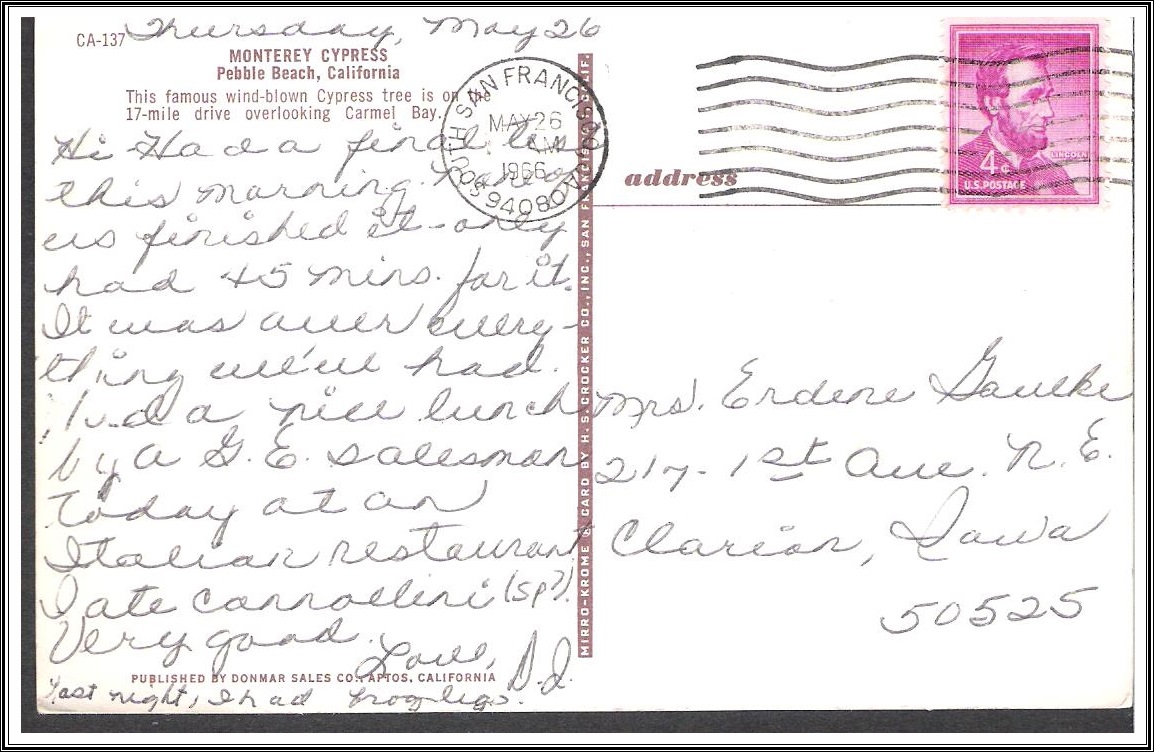 Thursday, May 26
CA-137
MONTEREY CYPRESS
Pebble Beach, California
This famous wind-blown Cypress tree is on the
17-mile drive overlooking Carmel Bay.
Hi Had a final test
this morning. None of
us finished it - only
had 45 mins. for it.
It was over every-
thing we've had.
Had a nice lunch
by a G.E. salesman
today at an
Italian restaurant
I ate cannollini (sp?).
Very good.
Love, D.J.
PUBLISHED BY DONMAR SALES CO., APTOS, CALIFORNIA
Last night, I had frog legs.
MIRRO-KROME ® CARD BY H. S. CROCKER CO., INC., SAN FRANCISCO, CALIF.
SOUTH SAN FRANCISCO
MAY 26
AM
1966
94080
LINCOLN
4¢
U.S. POSTAGE
address
Mrs. Erdene Gaulke
217 - 1st Ave. N.E.
Clarion, Iowa
50525